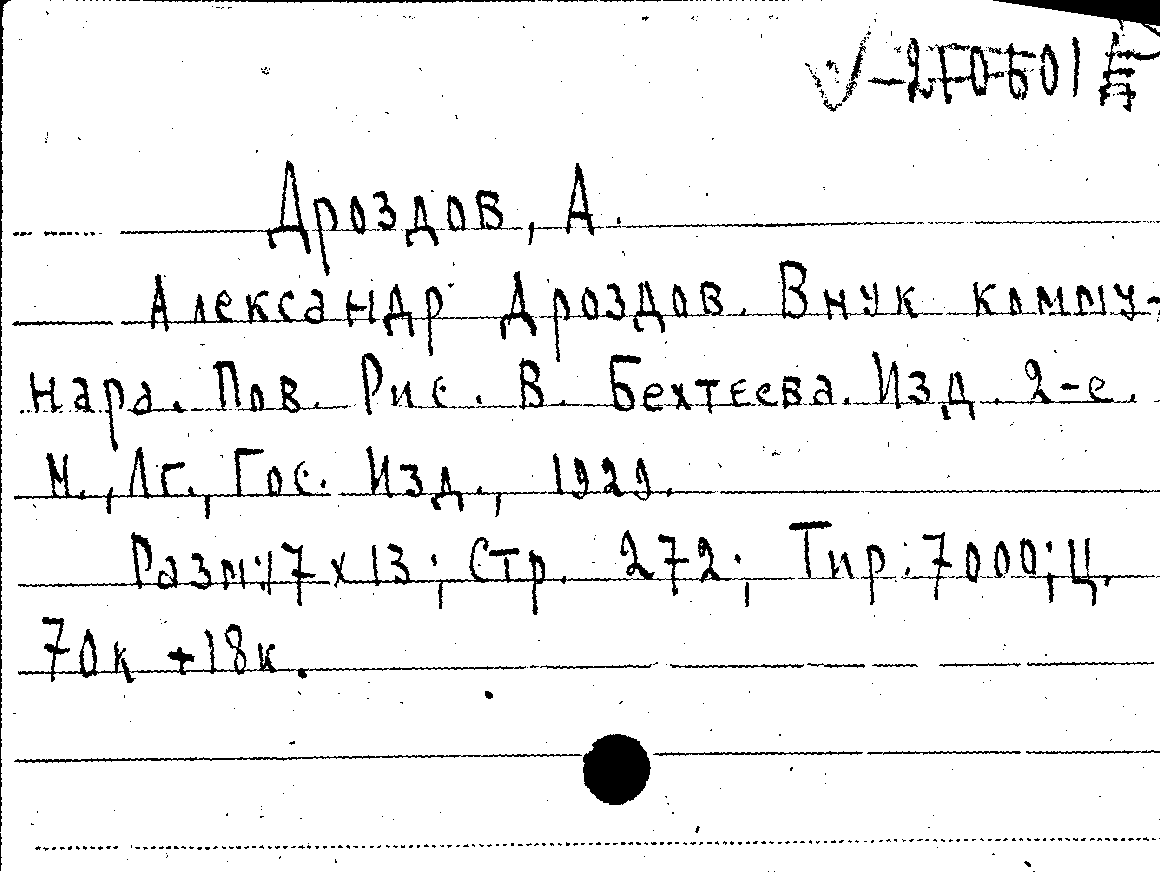 Дроздов, А.
Александр Дроздов. Внук комму-
нара. Пов. Рис. В. Бехтеева. Изд. 2-е.
М., Лг., Гос. Изд., 1929.
Разм: 17 х 13; Стр. 272; Тир: 7000; Ц.
70к +18к.